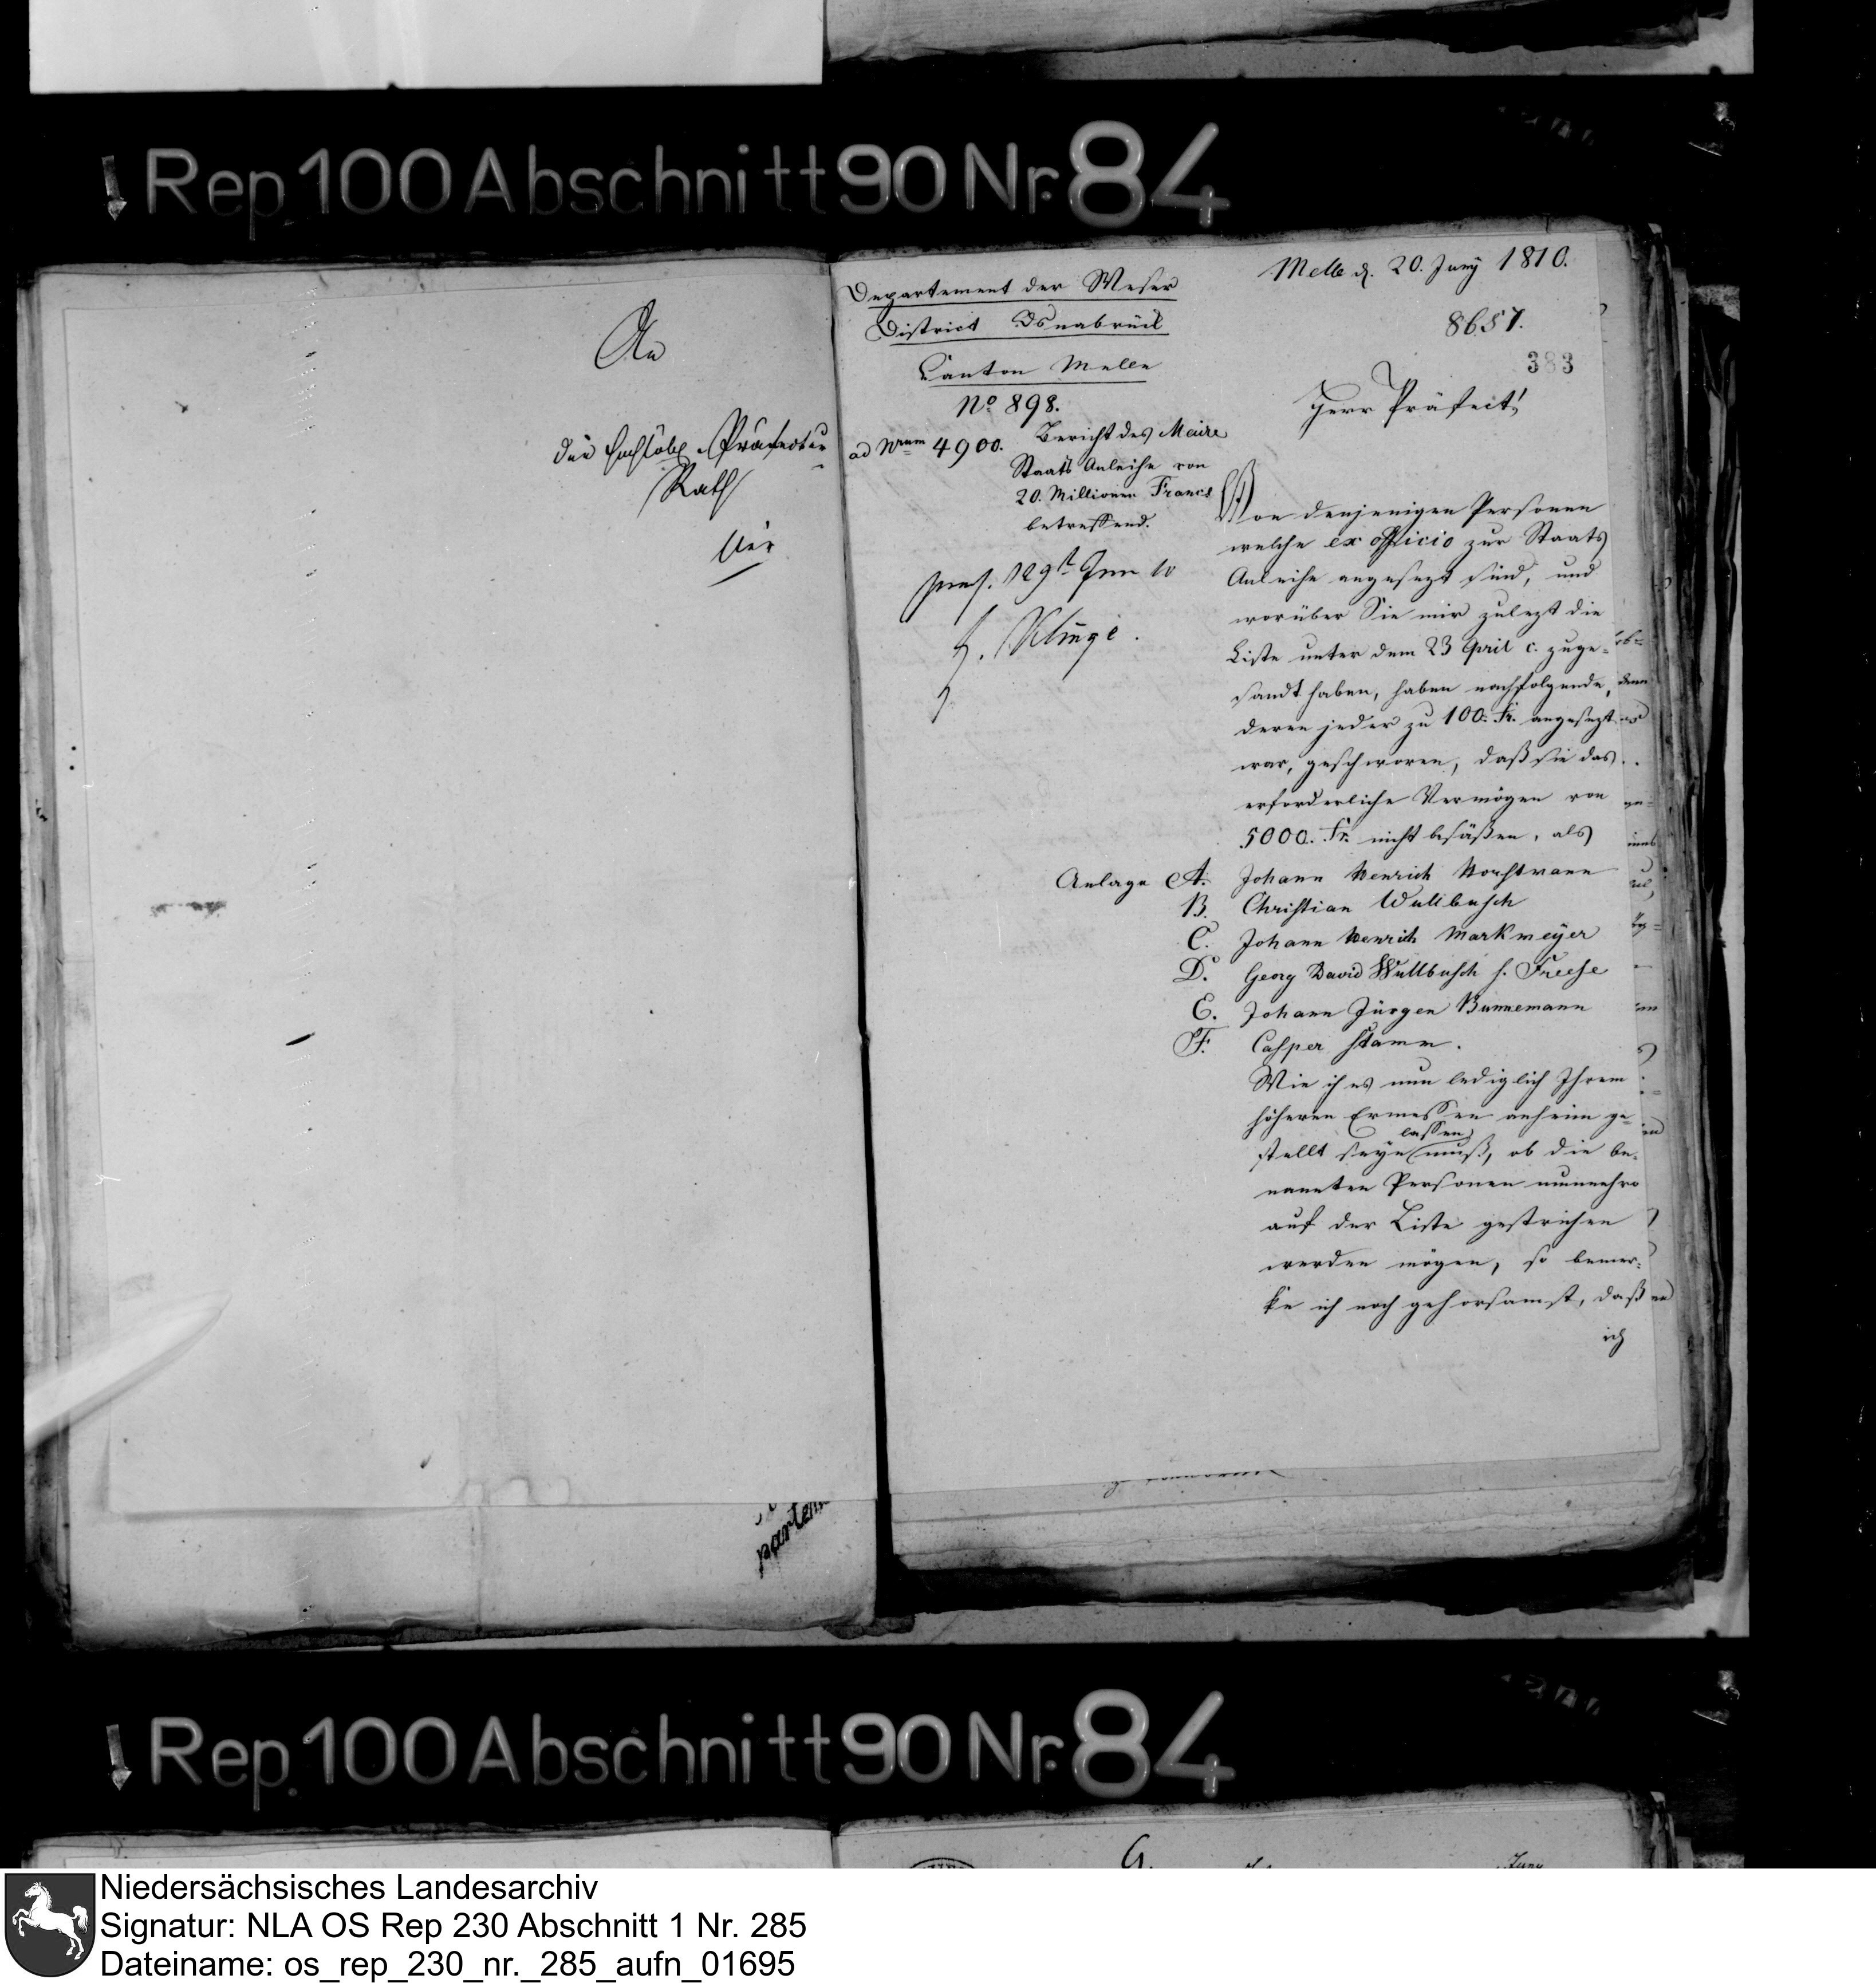 Rep. 100 Abschnitt 90 Nr. 84
An
die Hochlöbl. Präfectur
Rath
hier
Departement der Weser
District Osnabrück
Canton Melle
No 898.
ad Nrum 4900.
Bericht des Maire
Staats Anleihe von
20. Millionen Francs
betreffend.
praes. 29t Jun 10
Klinge.
Melle d. 20. Juny 1810.
8657.
383
Herr Präfect!
Von denjenigen Personen
welche ex officio zur Staats
Anleihe angesezt sind, und
worüber Sie mir zulezt die
Liste unter dem 23 April c. zuge-
sandt haben, haben nachfolgende,
deren jeder zu 100. Fr. angesezt
war, geschworen, daß sie das
erforderliche Vermögen von
5000. Fr. nicht besäßen, als
Anlage A. Johann Henrich Horstmann
B. Christian Wullbusch
C. Johann Henrich Markmeyer
D. Georg David Wullbusch s. Freese
E. Johann Jürgen Bunnemann
F. Casper Stamm.
Wie ich es nun lediglich Ihrem
höheren Ermessen anheim ge-
lassen
stellt seyn muß, ob die be-
nannten Personen nunmehro
auf der Liste gestrichen
werden mögen, so bemer-
ke ich noch gehorsamst, daß
ich
partem
Rep. 100 Abschnitt 90 Nr. 84
G.
Juny
Niedersächsisches Landesarchiv
Signatur: NLA OS Rep 230 Abschnitt 1 Nr. 285
Dateiname: os_rep_230_nr._285_aufn_01695